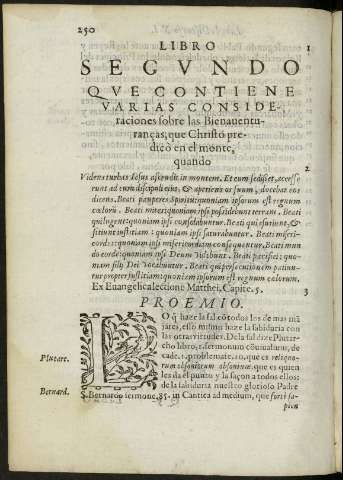 250
LIBRO 1
SEGVNDO
QVE CONTIENE
VARIAS CONSIDE-
raciones sobre las Bienauentu-
ranças, que Christo pre-
dicò en el monte,
quando 2
Videns turbas Iesus ascendit in montem. Et cum sedisset, accesse
runt ad eum discipuli eius, & aperiens os suum, docebat eos
dicens. Beati pauperes spiritu: quoniam ipsorum est regnum
cælorũ. Beati mites: quoniam ipsi possidebunt terram. Beati
qui lugent: quoniam ipsi consolabuntur. Beati qui esuriunt, &
sitiunt iustitiam: quoniam ipsi saturabuntur. Beati miseri-
cordes: quoniam ipsi misericordiam consequentur. Beati mun
do corde: quoniam ipsi Deum videbunt. Beati pacifici: quo-
niam filij Dei vocabuntur. Beati qui persecutionem patiun-
tur propter iustitiam: quoniam ipsorum est regnum cælorum.
Ex Euangelica lectione Matthei, Capite. 5. 3
PROEMIO.
LO q̃ haze la sal cõ todos los de mas mã
jares, esso mismo haze la sabiduria con
las otras virtudes. De la sal dize Plutar-
Plutarc. cho libro, 1. sermonum cõuiualium, de
cade. 1. problemate. 10. que es reliquo-
rum obsoniorum obsonium, que es quien
les da el punto y la saçon a todos ellos:
Bernard. de la sabiduria nuestro glorioso Padre
S. Bernardo sermone. 85. in Cantica ad medium, que forsi sa-
pien